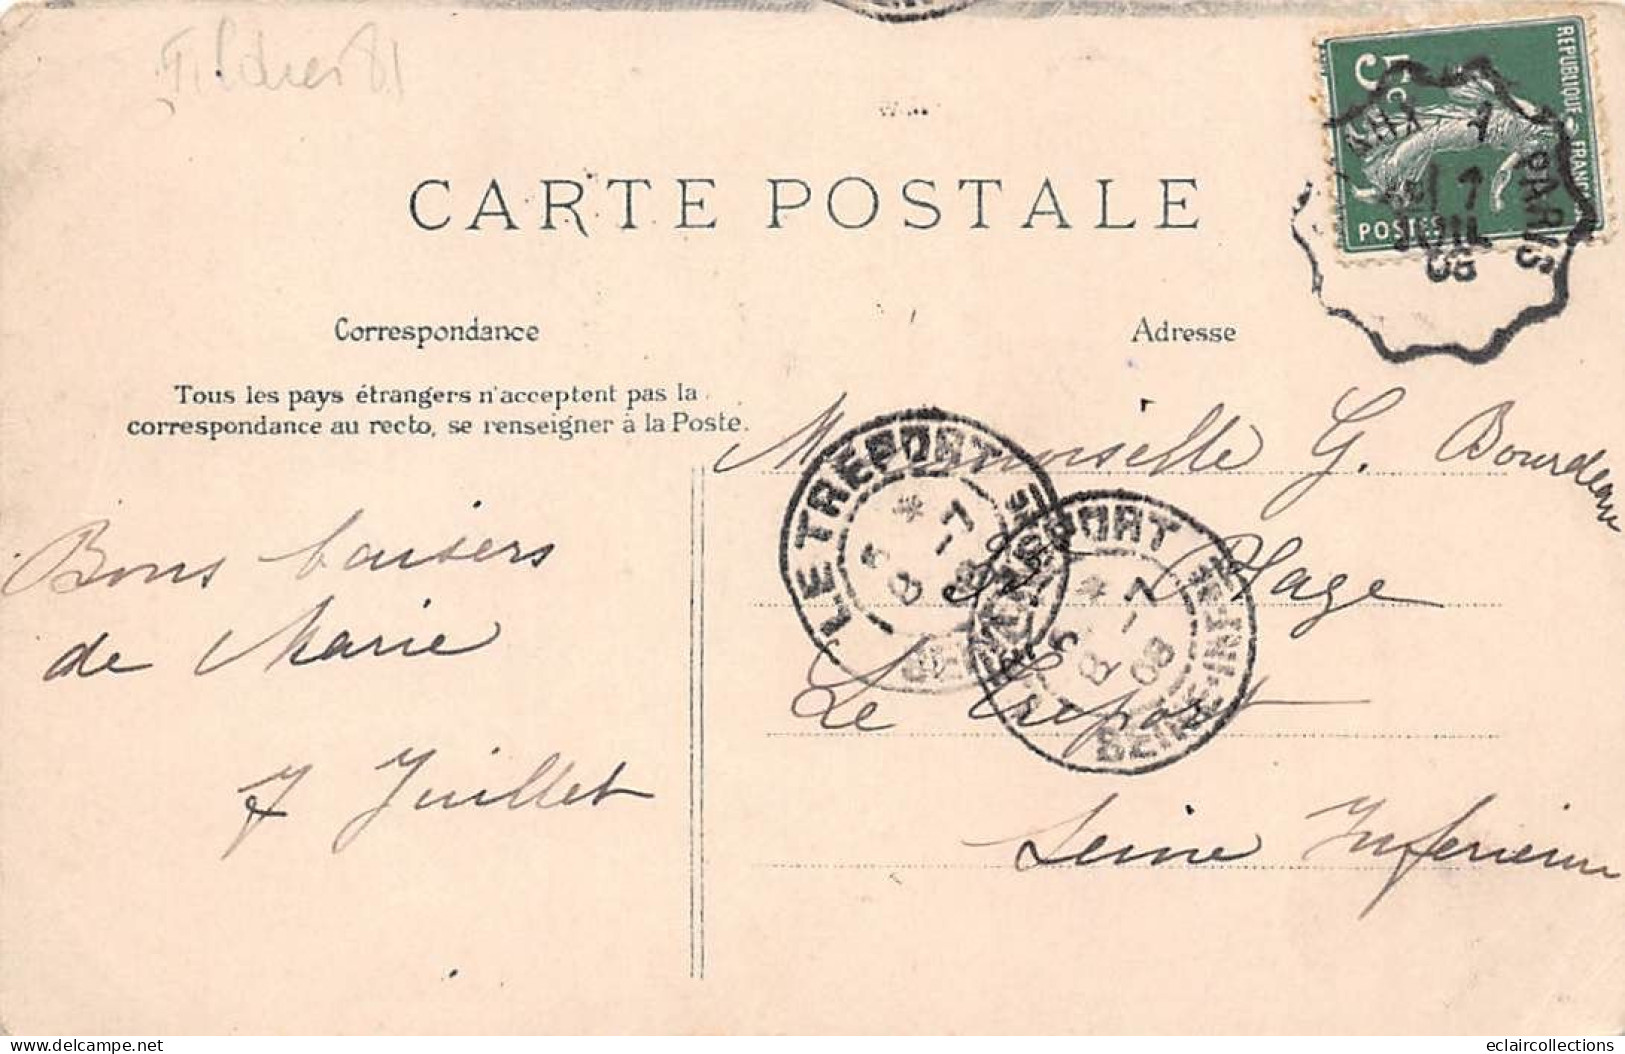 5c
REPUBLIQUE FRANC
POSTES
PARIS
7
JUIL
08
CARTE POSTALE
Correspondance
Adresse
Tous les pays étrangers n'acceptent pas la
correspondance au recto, se renseigner à la Poste.
Mademoiselle G. Bourdeau
LE TREPORT
SEINE-INFRE
8-7
08
LE TREPORT
SEINE-INFRE
8-7
08
Plage
Le Treport
Seine Inferieure
Bons baisers
de Marie
7 Juillet
delcampe.net
eclaircollections